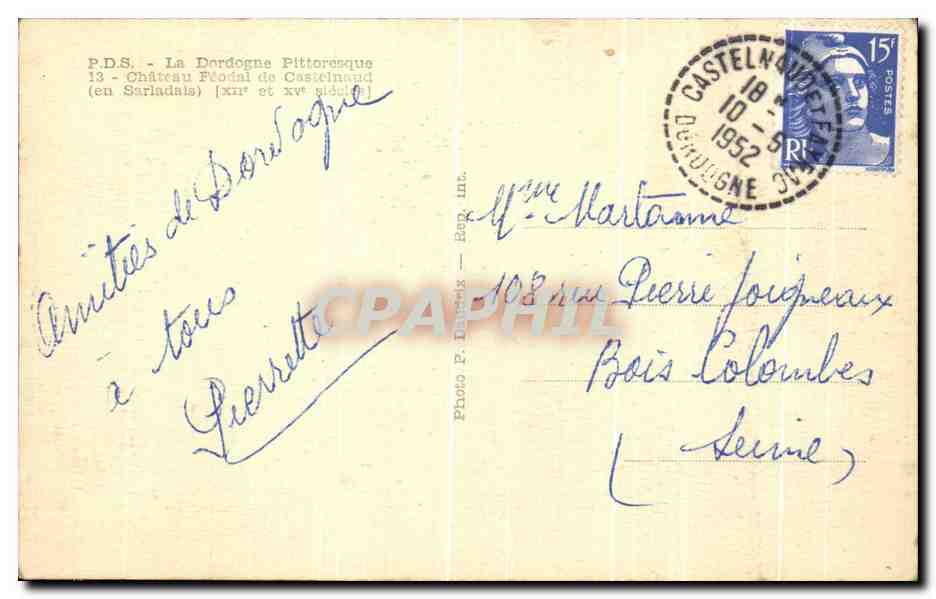 P.D.S. - La Dordogne Pittoresque
13 - Château Féodal de Castelnaud
(en Sarladais) [XIIe et XVe siècles]
Amitiés de Dordogne
à tous
Pierrette
Photo P. Daudrix — Rep. int.
CPAPHIL
CASTELNAUD ET FAYRAC
18
10 - 5
1952
DORDOGNE
15F
POSTES
RF
Mme Martanne
108 rue Pierre Joigneaux
Bois Colombes
(Seine)